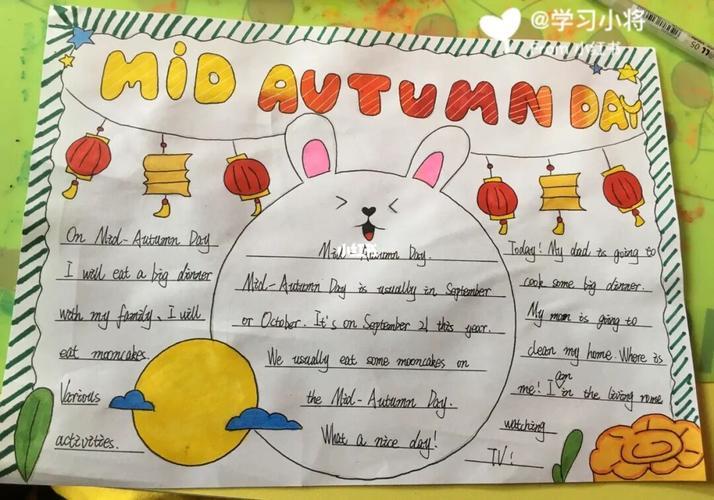 @学习小将
From小红书
MiD AUTUMN DAY
On Mid-Autumn Day
I will eat a big dinner
with my family、I will
eat mooncakes.
Various
activities.
小红书
Mid-Autumn Day.
Mid-Autumn Day is usually in September
or October. It's on September 21 this year.
We usually eat some mooncakes on
the Mid-Autumn Day.
What a nice day!
Today! My dad is going to
cook some big dinner.
My mom is going to
clean my home. Where is
me! I am in the living rome
watching
TV!